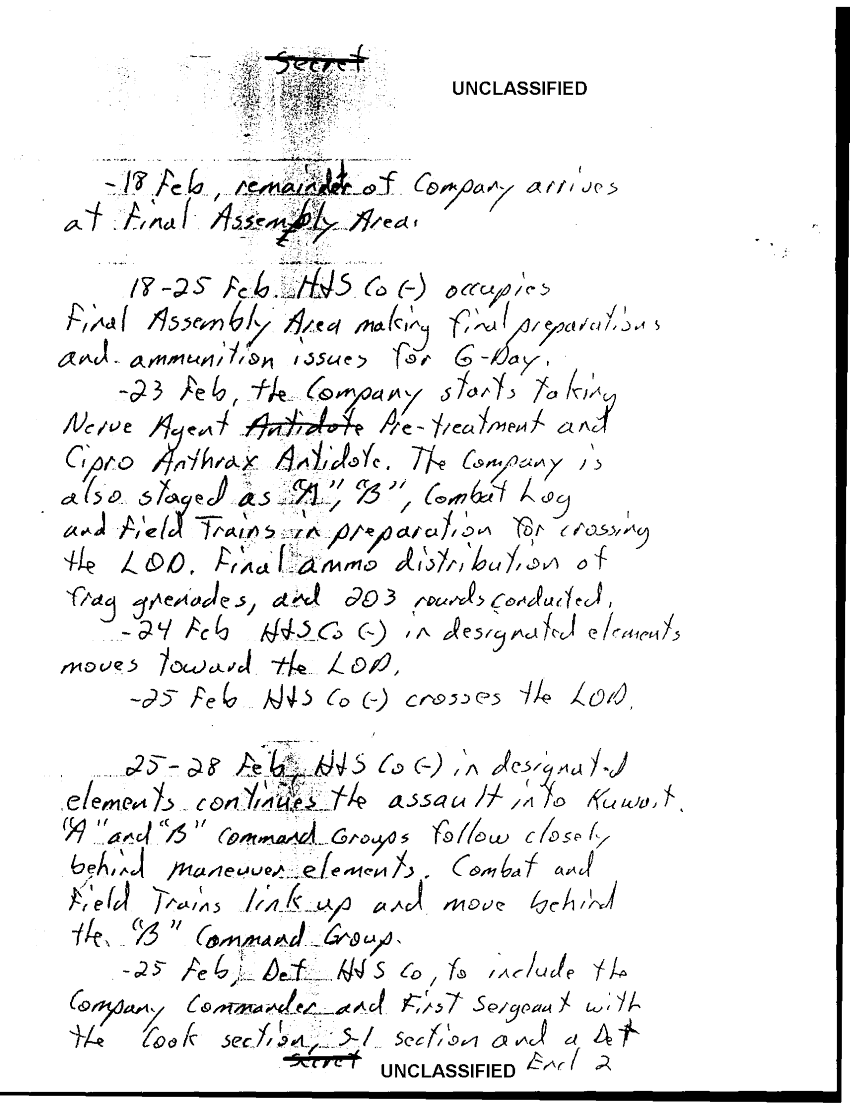 Secret
UNCLASSIFIED
-18 Feb, remainder of Company arrives
at Final Assembly Area.
18-25 Feb. H&S Co (-) occupies
Final Assembly Area making final preparations
and ammunition issues for G-Day.
-23 Feb, the Company starts taking
Nerve Agent Antidote Pre-treatment and
Cipro Anthrax Antidote. The Company is
also staged as "A", "B", Combat Log
and Field Trains in preparation for crossing
the LOD. Final ammo distribution of
frag grenades, and 203 rounds conducted.
-24 Feb H&S Co (-) in designated elements
moves toward the LOD.
-25 Feb H&S Co (-) crosses the LOD.
25-28 Feb, H&S Co (-) in designated
elements continues the assault into Kuwait.
"A" and "B" Command Groups follow closely
behind maneuver elements. Combat and
Field Trains link up and move behind
the "B" Command Group.
-25 Feb, Det H&S Co, to include the
Company Commander and First Sergeant with
the Cook section, S-1 section and a Det
Secret
UNCLASSIFIED Encl 2